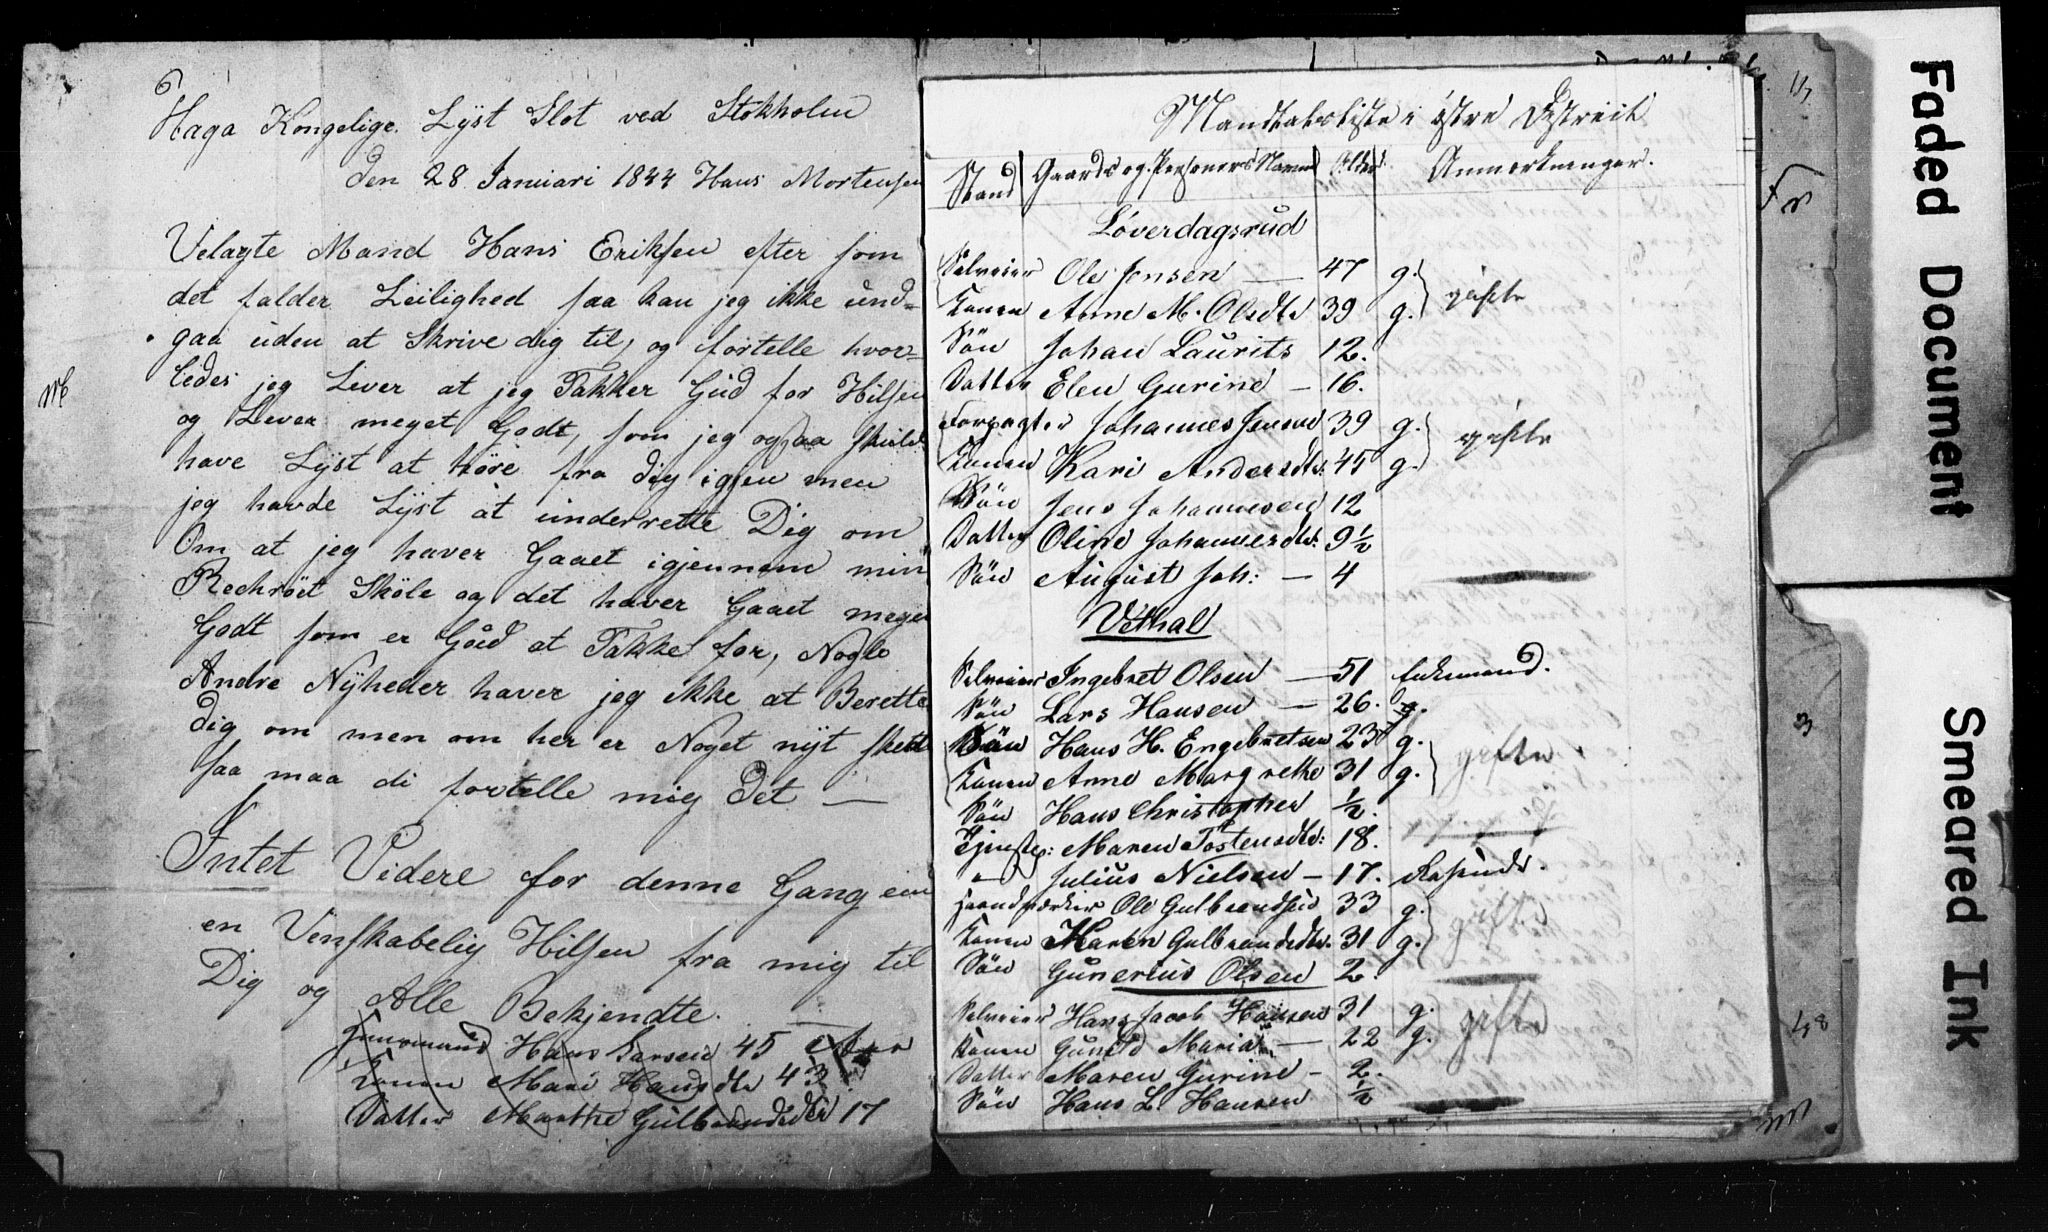 Haga Kongelige Lyst Slot ved Stokholm
den 28 Januari 1844 Hans Mortensen
Velagte Mand Hans Eriksen efter som
det falder Leilighed saa kan jeg ikke und=
gaa uden at Skrive dig til, og fortelle hvor=
ledes jeg Lever at jeg Takker Gud for Hilsen
og Lever meget Godt, som jeg ogsaa skulde
have Lyst at høre fra dig igjen men
jeg havde Lyst at underrette Dig om
Om at jeg haver Gaaet igjennem min
Rechrøet Skole og det haver Gaaet meget
Godt som er Gud at Takke for, Nogle
Andre Nyheder haver jeg ikke at Berette
dig om men om her er Noget nyt skedt
saa maa di fortelle mig Det —
Intet Videre for denne Gang end
en Venskabelig Hilsen fra mig til
Dig og Alle Bekjendte.
Hans Larsen 45
Konen Mari Hansdtr 43
Datter Marthe Gulbrandsdtr 17
Mandtalsliste i østre Distreict
Stand Gaards og Personers Navne Alder Anmerkninger.
Løverdagsrud
Selveier Ole Jensen — 47 g.
Konen Anne M. Olsdtr 39 g. gifte
Søn Johan Laurits 12.
Datter Elen Gurine — 16.
Forpagter Johannes Jensen 39 g.
Konen Kari Andersdtr: 45 g. gifte
Søn Jens Johannesen 12
Datter Oline Johannesdtr: 9½
Søn August Joh: — 4
Vethal
Selveier Ingebret Olsen — 51 Enkemand.
Søn Lars Hansen — 26. g.
Søn Hans H. Engebretsen 23 g.
Konen Anne Margrethe 31 g. gifte
Søn Hans Christopher ½.
Tjenste: Maren Tostensdtr: 18.
— Julius Nielsen — 17.
Haandværker Ole Gulbrandsen 33 g.
Konen Maren Gulbrandsdtr. 31 g. gifte
Søn Gunerius Olsen 2.
Selveier Hans Jacob Hansen 31 g.
Konen Gunild Maria — 22 g. gifte
Datter Maren Gurine — 2.
Søn Hans L. Hansen ½
Faded Document
Smeared Ink